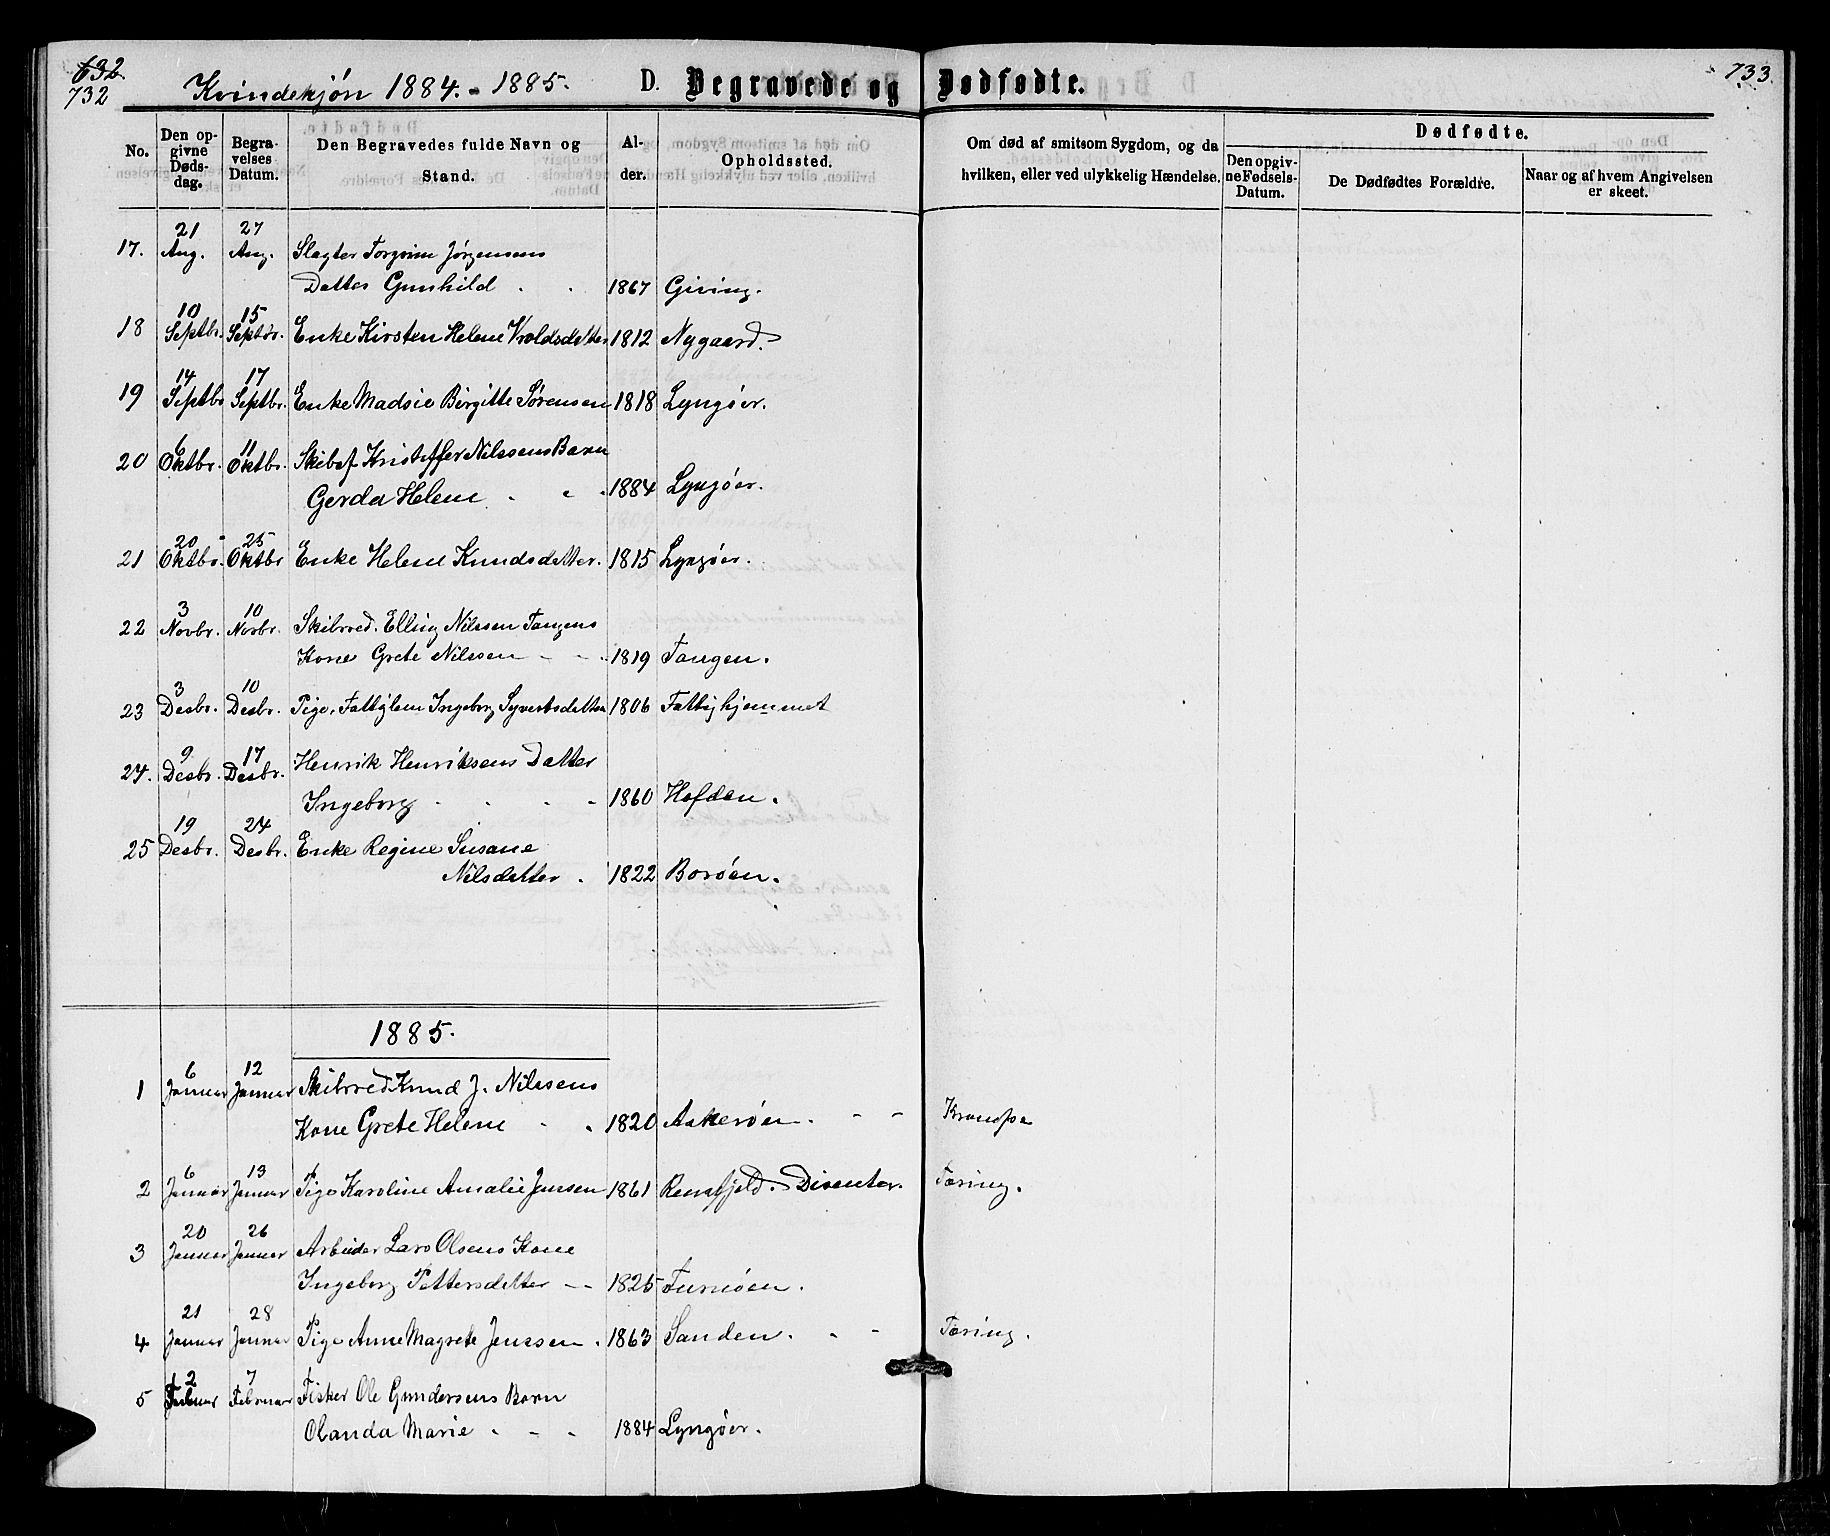 632
732
Kvindekjön 1884. - 1885.
D. Begravede og Dødfødte.
733.
No.
Den op-
givne
Døds-
dag.
Begra-
velses
Datum.
Den Begravedes fulde Navn og
Stand.
Al-
der.
Opholdssted.
Om død af smitsom Sygdom, og da
hvilken, eller ved ulykkelig Hændelse.
Dødfødte.
Den opgiv-
ne Fødsels-
Datum.
De Dødfødtes Forældre.
Naar og af hvem Angivelsen
er skeet.
17. 21 Aug. 27 Aug. Slagter Torgrim Jørgensens
Datter Gunhild 1867 Giving.
18 10 Septbr. 15 Septbr. Enke Kirsten Helene Vroldsdatter 1812 Nygaard.
19 14 Septbr 17 Septbr. Enke Madsie Birgitte Sørensen 1818 Lyngøer.
20 6 Oktbr. 11 Oktbr. Skibsf Kristoffer Nilssens Barn
Gerda Helene 1884 Lyngøer.
21 20 Oktbr. 25 Oktbr Enke Helene Knudsdatter. 1815 Lyngøer.
22 3 Novbr. 10 Novbr. Skibsred. Elling Nilssen Tangens
Kone Grete Nilssen 1819 Tangen.
23 3 Desbr. 10 Desbr. Pige, Fattiglem Ingeborg Syvertsdatter 1806 Fattighjemmet
24. 9 Desbr. 17 Desbr. Henrik Henriksens Datter
Ingeborg 1860 Hofden.
25 19 Desbr. 24 Desbr. Enke Regine Susane
Nilsdatter 1822 Borøen.
1885.
1 6 Januar 12 Januar Skibsred Knud J. Nilssens
Kone Grete Helene 1820 Askerøen.
2 6 Januar 13 Januar Pige Karoline Amalie Jensen 1861 Rensfjeld. Disenter. Tæring.
3 20 Januar 26 Januar Arbeider Lars Olsens Kone
Ingeborg Pettersdatter 1825 Furuöen.
4 21 Januar 28 Januar Pige Anne Magrete Jenssen. 1863 Sanden. Tæring.
5 2 Februar 7 Februar Fisker Ole Gundersens Barn
Olanda Marie 1884 Lyngøer.